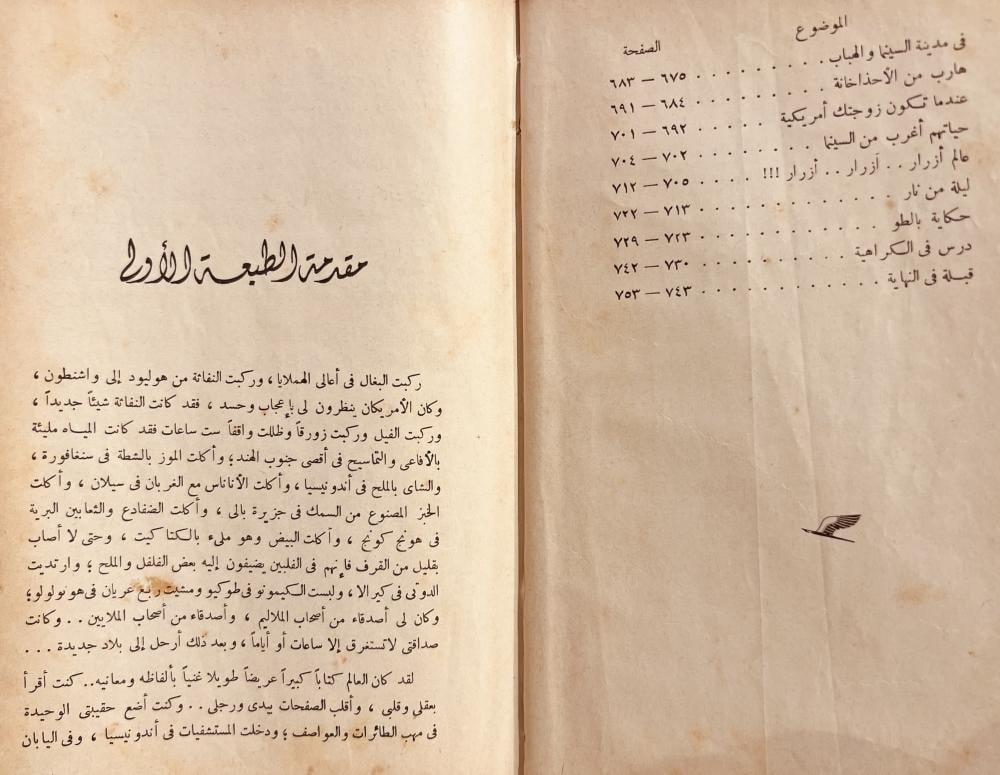 الموضوع
الصفحة
فى مدينة السينما والهباب . . . . . . . . . ٦٧٥ — ٦٨٣
هارب من الأحذاخانة . . . . . . . . . ٦٨٤ — ٦٩١
عندما تكون زوجتك أمريكية . . . . . ٦٩٢ — ٧٠١
حياتهم أغرب من السينما . . . . . . . . ٧٠٢ — ٧٠٤
عالم أزرار . . أزرار . . أزرار !!! . . . . ٧٠٥ — ٧١٢
ليلة من نار . . . . . . . . . . . . ٧١٣ — ٧٢٢
حكاية بالطو . . . . . . . . . . . . ٧٢٣ — ٧٢٩
درس فى الكراهية . . . . . . . . . . . ٧٣٠ — ٧٤٢
قبلة فى النهاية . . . . . . . . . . . ٧٤٣ — ٧٥٣
مقدمة الطبعة الأولى
ركبت البغال فى أعالى الهملايا ، وركبت النفاثة من هوليود إلى واشنطون ،
وكان الأمريكان ينظرون لى بإعجاب وحسد ، فقد كانت النفاثة شيئاً جديداً ،
وركبت الفيل وركبت زورقاً وظللت واقفاً ست ساعات فقد كانت المياه مليئة
بالأفاعى والتماسيح فى أقصى جنوب الهند ؛ وأكلت الموز بالشطة فى سنغافورة ،
والشاى بالملح فى أندونيسيا ، وأكلت الأناناس مع الغربان فى سيلان ، وأكلت
الخبز المصنوع من السمك فى جزيرة بالى ، وأكلت الضفادع والثعابين البرية
فى هونج كونج ، وأكلت البيض وهو ملىء بالكتاكيت ، وحتى لا أصاب
بقليل من القرف فإنهم فى الفلبين يضيفون إليه بعض الفلفل والملح ؛ وارتديت
الدوتى فى كيرالا ، ولبست الكيمونو فى طوكيو ومشيت ربع عريان فى هونولولو ؛
وكان لى أصدقاء من أصحاب الملاليم ، وأصدقاء من أصحاب الملايين . . وكانت
صداقتى لا تستغرق إلا ساعات أو أياماً ، وبعد ذلك أرحل إلى بلاد جديدة . . .
لقد كان العالم كتاباً كبيراً عريضاً طويلا غنياً بألفاظه ومعانيه . . كنت أقرأ
بعقلى وقلبى ، وأقلب الصفحات بيدى ورجلى . . وكنت أضع حقيبتى الوحيدة
فى مهب الطائرات والعواصف ؛ ودخلت المستشفيات فى أندونيسيا ، وفى اليابان